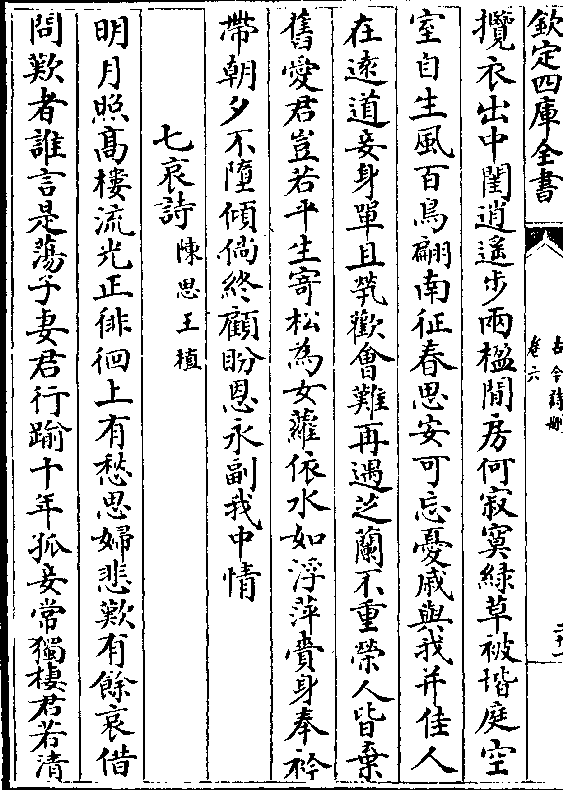 欽定四庫全書
古今詩刪
卷六
攬衣出中閨逍遥步兩楹閒房何寂寞緑草被堦庭空
室自生風百鳥翩南征春思安可忘憂戚與我并佳人
在逺道妾身單且煢歡會難再遇芝蘭不重榮人皆棄
舊愛君豈若平生寄松為女蘿依水如浮萍賫身奉衿
帶朝夕不墮傾倘終顧盼恩永副我中情
七哀詩 陳思王植
明月照髙樓流光正徘徊上有愁思婦悲歎有餘哀借
問歎者誰言是蕩子妻君行踰十年孤妾常獨棲君若清